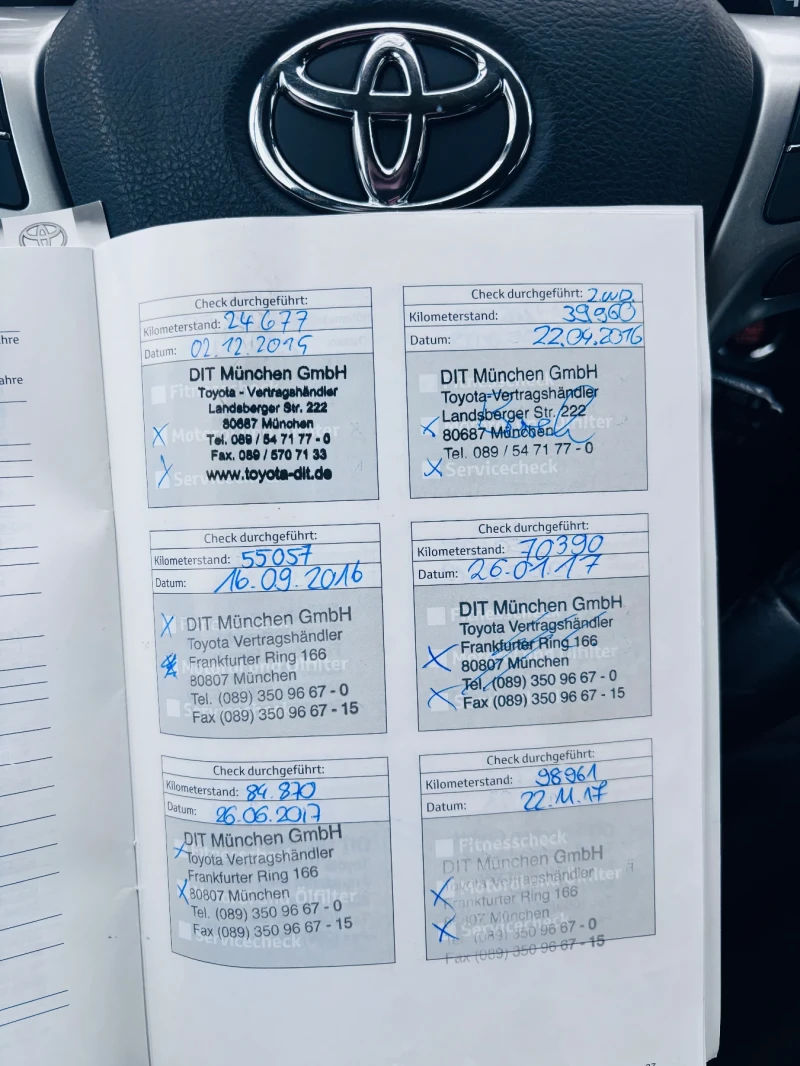 hre
ahre
Check durchgeführt:
Kilometerstand: 24677
Datum: 02.12.2015
Fitn
DIT München GmbH
Toyota - Vertragshändler
Landsberger Str. 222
80687 München
Tel. 089 / 54 71 77 - 0
Fax. 089 / 570 71 33
www.toyota-dit.de
Servicecheck
Check durchgeführt:
Kilometerstand: 39960
Datum: 22.04.2016
DIT München GmbH
Toyota-Vertragshändler
Landsberger Str. 222
80687 München
Tel. 089 / 54 71 77 - 0
Servicecheck
Check durchgeführt:
Kilometerstand: 55057
Datum: 16.09.2016
DIT München GmbH
Toyota Vertragshändler
Frankfurter Ring 166
80807 München
Tel. (089) 350 96 67 - 0
Fax (089) 350 96 67 - 15
Check durchgeführt:
Kilometerstand: 70390
Datum: 26.01.17
DIT München GmbH
Toyota Vertragshändler
Frankfurter Ring 166
80807 München
Tel. (089) 350 96 67 - 0
Fax (089) 350 96 67 - 15
Check durchgeführt:
Kilometerstand: 84.870
Datum: 26.06.2017
DIT München GmbH
Toyota Vertragshändler
Frankfurter Ring 166
80807 München
Ölfilter
Tel. (089) 350 96 67 - 0
Fax (089) 350 96 67 - 15
Servicecheck
Check durchgeführt:
Kilometerstand: 98961
Datum: 22.11.17
Fitnesscheck
DIT München GmbH
Toyota Vertragshändler
Frankfurter Ring 166
80807 München
(089) 350 96 67 - 0
Fax (089) 350 96 67 - 15